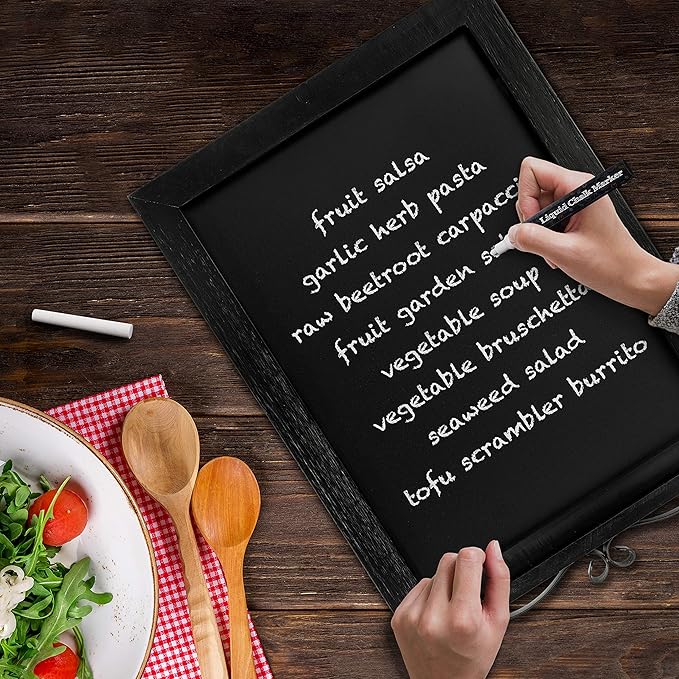 fruit salsa
garlic herb pasta
raw beetroot carpacci
Liquid Chalk Marker
fruit garden
vegetable soup
vegetable bruschetta
seaweed salad
tofu scrambler burrito